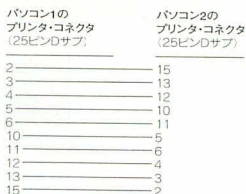 パソコン1の
プリンタ・コネクタ
(25ピンDサブ)
パソコン2の
プリンタ・コネクタ
(25ピンDサブ)
2 15
3 13
4 12
5 10
6 11
10 5
11 6
12 4
13 3
15 2